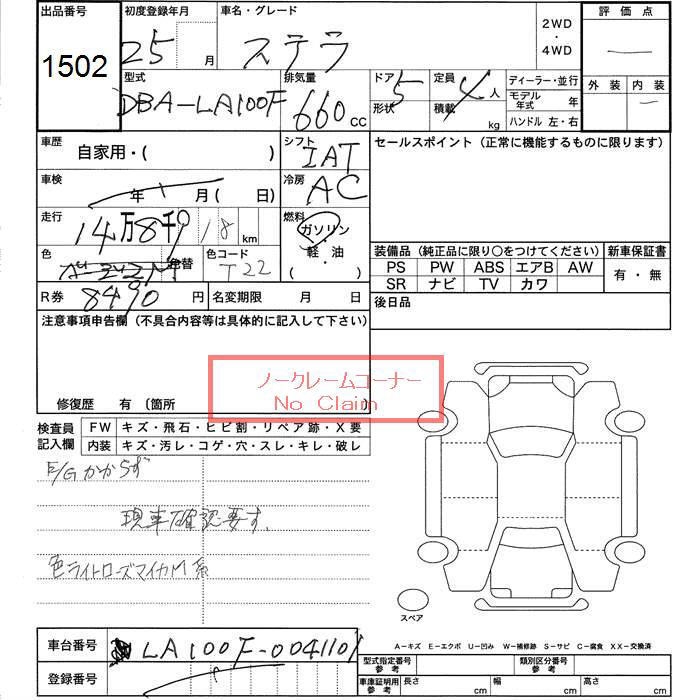 出品番号 初度登録年月 車名・グレード 2WD ・ 4WD 評価点
1502 25 月 ステラ
外装 内装
型式 排気量 ドア 定員 ディーラー・並行
DBA-LA100F 660 CC 5 4 人 モデル年式 年
形状 積載 kg ハンドル 左・右
車歴 シフト セールスポイント（正常に機能するものに限ります）
自家用・( ) IAT
車検 冷房
年 月 ( 日) AC
走行 燃料
14万8千 18 km ガソリン
色 色コード 軽・油 装備品（純正品に限り〇をつけてください） 新車保証書
色替 T22 ( ・ ) PS PW ABS エアB AW 有・無
R券 8490 円 名変期限 月 日 SR ナビ TV カワ
注意事項申告欄（不具合内容等は具体的に記入して下さい） 後日品
ノークレームコーナー
No Claim
修復歴 有 〔箇所
検査員 FW キズ・飛石・ヒビ割・リペア跡・X要
記入欄 内装 キズ・汚レ・コゲ・穴・スレ・キレ・破レ
E/Gかからず
現車確認要す.
色ライトローズマイカM系
スペア
A－キズ E－エクボ U－凹み W－補修跡 S－サビ C－腐食 XX－交換済
車台番号 LA100F-0041101
型式指定番号 参考 類別区分番号 参考
登録番号
車庫証明用 参考 長さ cm 幅 cm 高さ cm